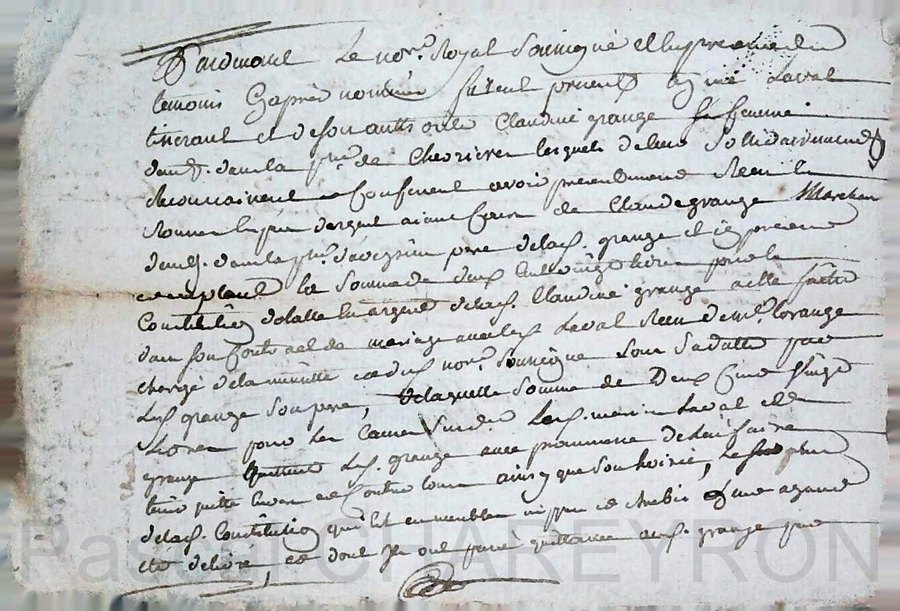 Pardevant Le no.re Royal Soussigné et En presence des
temoins Cy aprés nommés furent presents aymé Laval
tisserant et de son authorité Claudine grange sa femme
dem.t dans la p.sse de Chevrieres lesquels de leur Sollidairement
Reconnaissent et Confessent avoir presentement Receu
argent aiant Cours de Claude grange Marchan
dem.t dans la p.sse d'aveysieu pere de lad. grange et icy present
acceptant la Somme de deux Cent vingt livres pour la
Constitution delatte En argent de lad. Claudine grange a elle faitte
dans son Contract de mariage avec led. Laval Receu de M.e Lorange
chargé de la minutte ced. no.re soussigné Sous Sa datte par
Led. grange Son pere, de laquelle Somme de Deux Cent Vingt
Livres pour les Causes Susd. Led. marié Laval et
grange quittent Led. grange avec promesse de l'en faire
tenir quitte Envers et Contre tous ainsy que Son hoirie, Le Surplus
de lad. Constitution qu'est en meubles nippes et d'une
, et dont Ils ont passé quittance aud. grange par
Pascal CHAREYRON